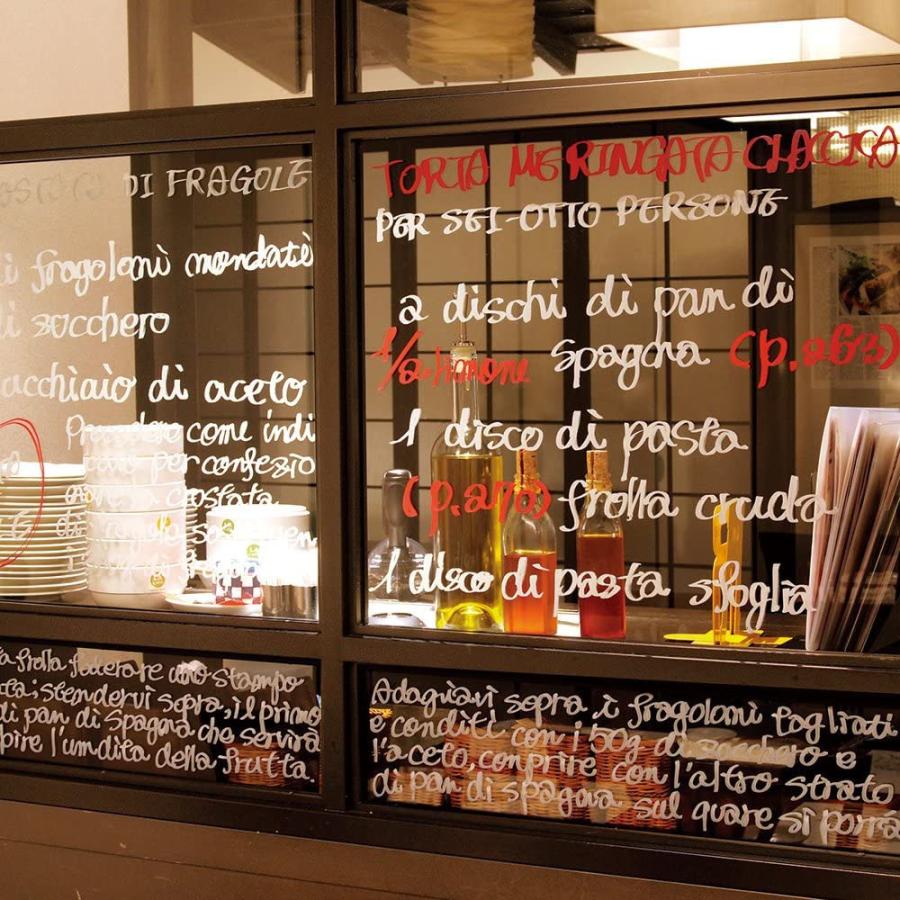 DI FRAGOLE
fragoloni mondati
di zucchero
acchiaio di aceto
come indi
per confezio
crostata
TORTA MERINGATA CLACCICA
PER SEI-OTTO PERSONE
2 dischi di pan di
1/2 limone spagna (p.263)
1 disco di pasta
(p.270) frolla cruda
1 disco di pasta sfoglia
a frolla foderare uno stampo
ta; stendervi sopra, il primo
di pan di spagna che servirà
pire l'umdita della frutta.
Adagiavi sopra i fragoloni tagliati
e conditi con i 50g di zucchero e
l'aceto, conprire con l'altro strato
di pan di spagna sul quare si porrà